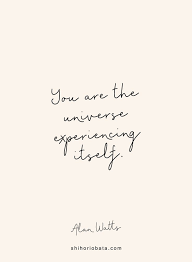 You are the
universe
experiencing
itself.
Alan Watts
shihoriobata.com